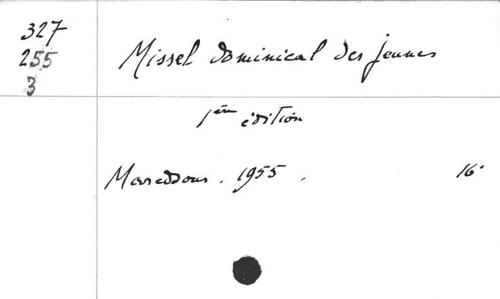 327
255
3
Missel dominical des jeunes
1ère édition
Maredsous. 1955. 16°